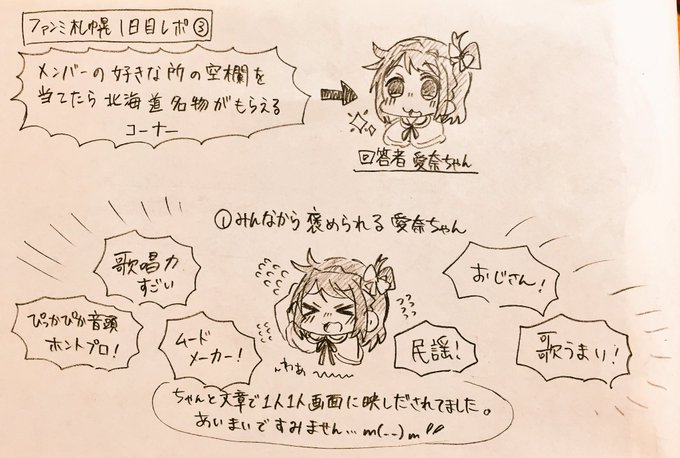 ファンミ札幌1日目レポ③
メンバーの好きな所の空欄を
当てたら北海道名物がもらえる
コーナー
回答者 愛奈ちゃん
①みんなから褒められる愛奈ちゃん
歌唱力
すごい
おじさん!
ぴっかぴか音頭
ホントプロ!
ムード
メーカー!
民謡!
歌うまい!
わぁ
ちゃんと文章で1人1人画面に映しだされてました。
あいまいですみません…m(--)m